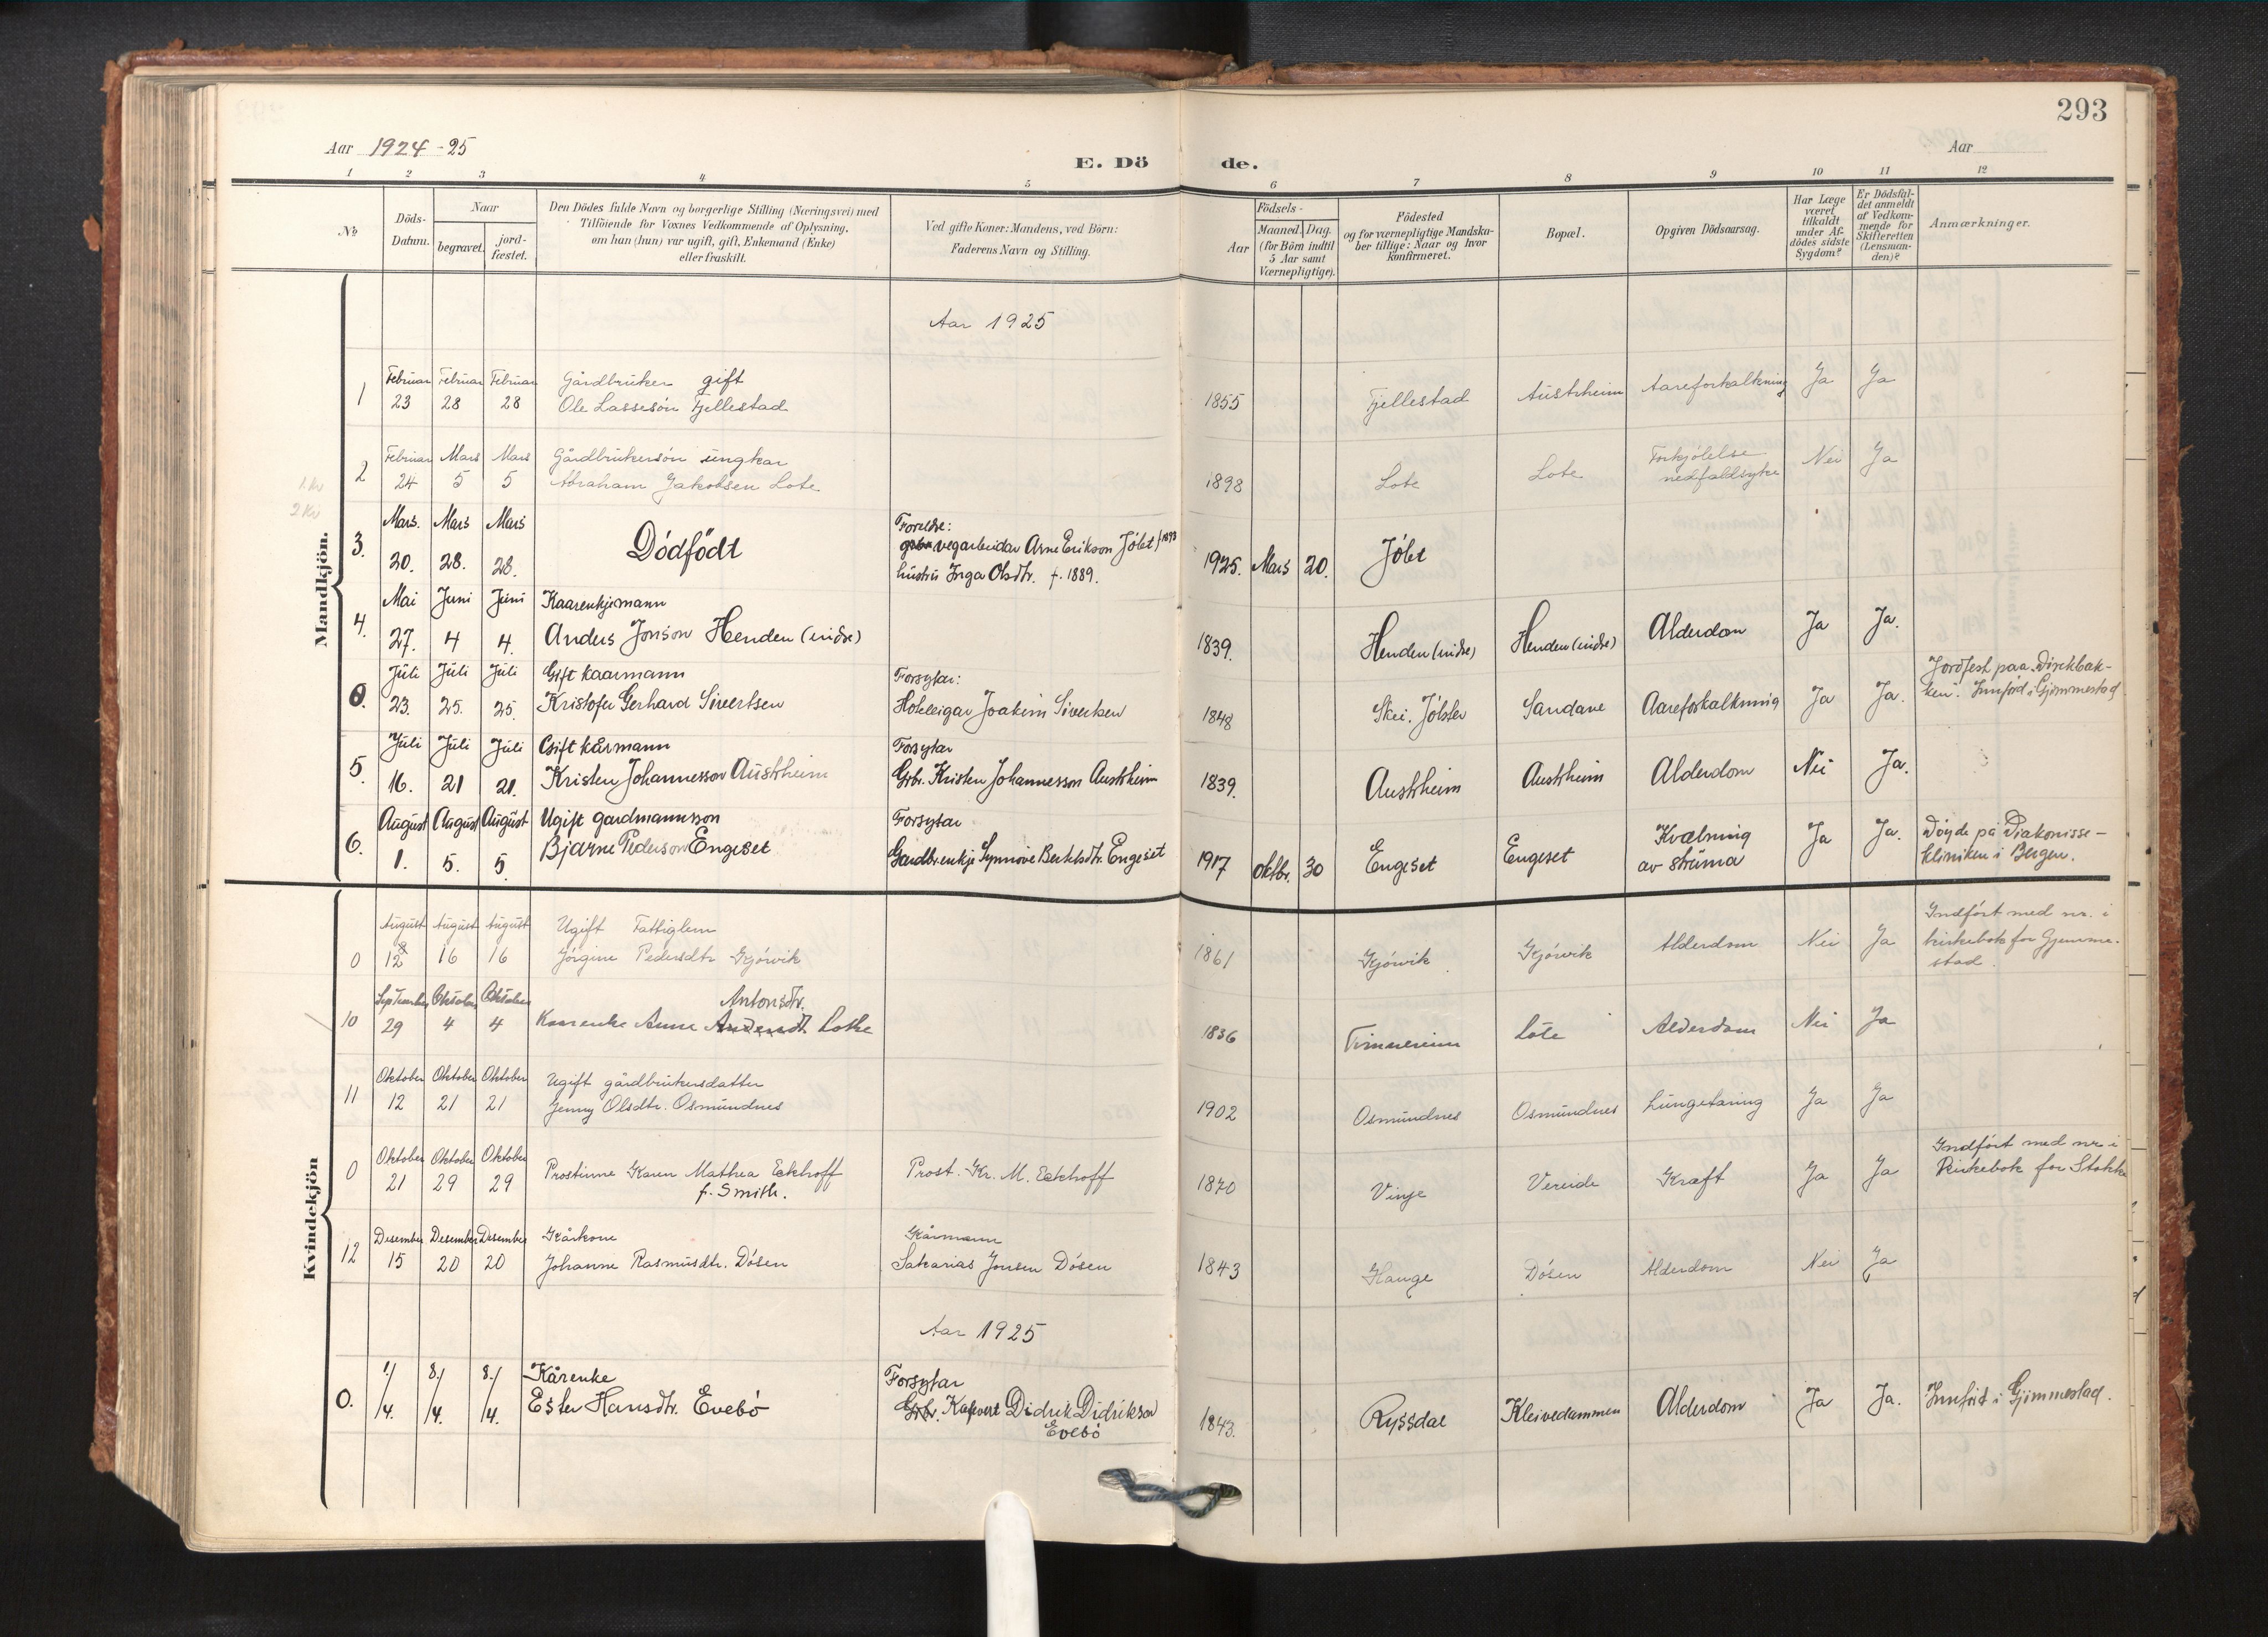 293
Aar 1924-25
E. Dö
de.
Aar
1 2 3 4 5 6 7 8 9 10 11 12
No
Döds-
Datum.
Naar
begravet.
jord-
fæstet.
Den Dödes fulde Navn og borgerlige Stilling (Næringsvei) med
Tilföiende for Voxnes Vedkommende af Oplysning,
om han (hun) var ugift, gift, Enkemand (Enke)
eller fraskilt.
Ved gifte Koner: Mandens, ved Börn:
Faderens Navn og Stilling.
Födsels-
Aar
Maaned.
Dag.
(for Börn indtil
5 Aar samt
Værnepligtige).
Födested
og for værnepligtige Mandska-
ber tillige: Naar og hvor
konfirmeret.
Bopæl.
Opgiven Dödsaarsag.
Har Læge
været
tilkaldt
under Af-
dödes sidste
Sygdom?
Er Dödsfal-
det anmeldt
af Vedkom-
mende for
Skifteretten
(Lensman-
den)?
Anmærkninger.
Mandkjön.
Aar 1925
1 Februar 23 Februar 28 Februar 28 Gårdbruker gift
Ole Lassesön Fjellestad 1855 Fjellestad Austrheim Aareforkalkning Ja Ja
1. Kv
2 Kv
2 Februar 24 Mars 5 Mars 5 Gårdbrukersön ungkar
Abraham Jakobsen Lote 1898 Lote Lote Forkjölelse
nedfaldsyke Nei Ja
3. Mars. 20. Mars 28. Mars 28. Dödfödt
Foreldre:
vegarbeidar Arne Erikson Jölet f. 1893
hustru Inga Olsdtr. f. 1889.
1925. Mars 20. Jölet
4. Mai 27. Juni 4 Juni 4. Kaarenkjemann
Anders Jonson Henden (nidre) 1839. Henden (nidre) Henden (nidre) Alderdom Ja Ja.
0. Juli 23. Juli 25. Juli 25. Gift kaarmann
Kristofer Gerhard Sivertsen
Forsytar:
Hotelleigar Joakim Sivertsen
1848 Skei. Jölster Sandane Aareforkalkning Ja Ja.
Jordfest paa "Dirckbak-
ken". Innförd i Gjemmestad
5. Juli 16. Juli 21 Juli 21. Gift kårmann
Kristen Johannesson Austrheim
Forsytar
Grbr. Kristen Johannesson Austrheim
1839. Austrheim Austrheim Alderdom Nei Ja.
6. August 1. August 5. August 5. Ugift gardmannsson
Bjarne Pederson Engeset
Forsytar
Gardbr.enkje Synnöve Bertelsdtr. Engeset
1917 oktbr. 30 Engeset Engeset Kvælning
av struma Ja Ja.
Döyde på Diakonisse-
kliniken i Bergen.
Kvindekjön
0 August 12 August 16 August 16 Ugift Fattiglem
Jörgine Pedersdtr Gjörvik 1861 Gjörvik Gjörvik Alderdom Nei Ja
Indfört med nr. i
kirkebok for Gjemme-
stad.
10 September 29 Oktober 4 Oktober 4 Antonsdtr.
Kaarenke Anne Andersdt. Lothe 1836 Lote Alderdom Nei Ja
11 Oktober 12 Oktober 21 Oktober 21 Ugift gårdbrukersdatter
Jenny Olsdtr. Osmundnes 1902 Osmundnes Osmundnes Lungetæring Ja Ja
0 Oktober 21 Oktober 29 Oktober 29 Prostinne Karen Mathea Eckhoff
f. Smith.
Prost. Kr. M. Eckhoff
1870 Vinje Vereide Kræft Ja Ja
Indfört med nr. i
Kirkebok for
12 Desember 15 Desember 20 Desember 20 Kårkone
Johanne Rasmusdtr. Dösen
Kårmann
Sakarias Jonsen Dösen
1843 Hauge Dösen Alderdom Nei Ja
Aar 1925
0. 1/4. 8/4. 8/4. Kårenke
Ester Hansdtr. Evebö
Forsytar
Grbr. Didrik Didrikson
Evebö
1843. Ryssdal Kleivedammen Alderdom Ja Ja. Innfört i Gjimmestad.